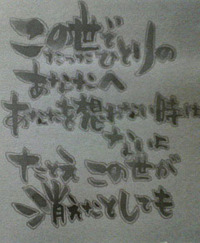 この世で
たったひとりの
あなたへ
あなたを想わない時は
ないよ
たとえ この世が
消えたとしても